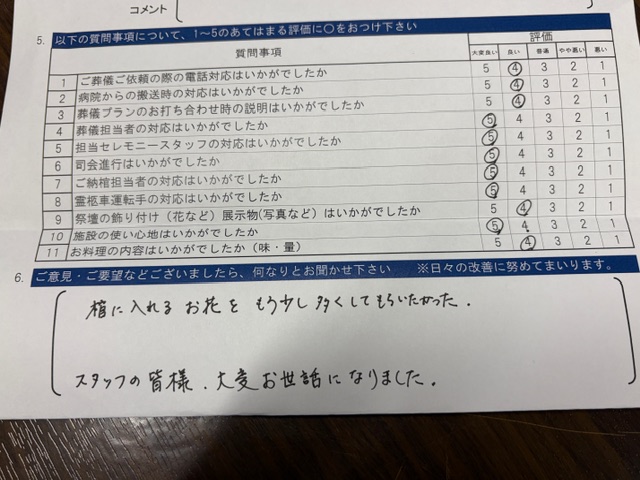 コメント
5. 以下の質問事項について、1～5のあてはまる評価に○をおつけ下さい
質問事項 評価
大変良い 良い 普通 やや悪い 悪い
1 ご葬儀ご依頼の際の電話対応はいかがでしたか 5 4 3 2 1
2 病院からの搬送時の対応はいかがでしたか 5 4 3 2 1
3 葬儀プランのお打ち合わせ時の説明はいかがでしたか 5 4 3 2 1
4 葬儀担当者の対応はいかがでしたか 5 4 3 2 1
5 担当セレモニースタッフの対応はいかがでしたか 5 4 3 2 1
6 司会進行はいかがでしたか 5 4 3 2 1
7 ご納棺担当者の対応はいかがでしたか 5 4 3 2 1
8 霊柩車運転手の対応はいかがでしたか 5 4 3 2 1
9 祭壇の飾り付け（花など）展示物(写真など）はいかがでしたか 5 4 3 2 1
10 施設の使い心地はいかがでしたか 5 4 3 2 1
11 お料理の内容はいかがでしたか（味・量） 5 4 3 2 1
6. ご意見・ご要望などございましたら、何なりとお聞かせ下さい ※日々の改善に努めてまいります。
棺に入れる お花を もう少し多くしてもらいたかった.
スタッフの皆様. 大変お世話になりました.